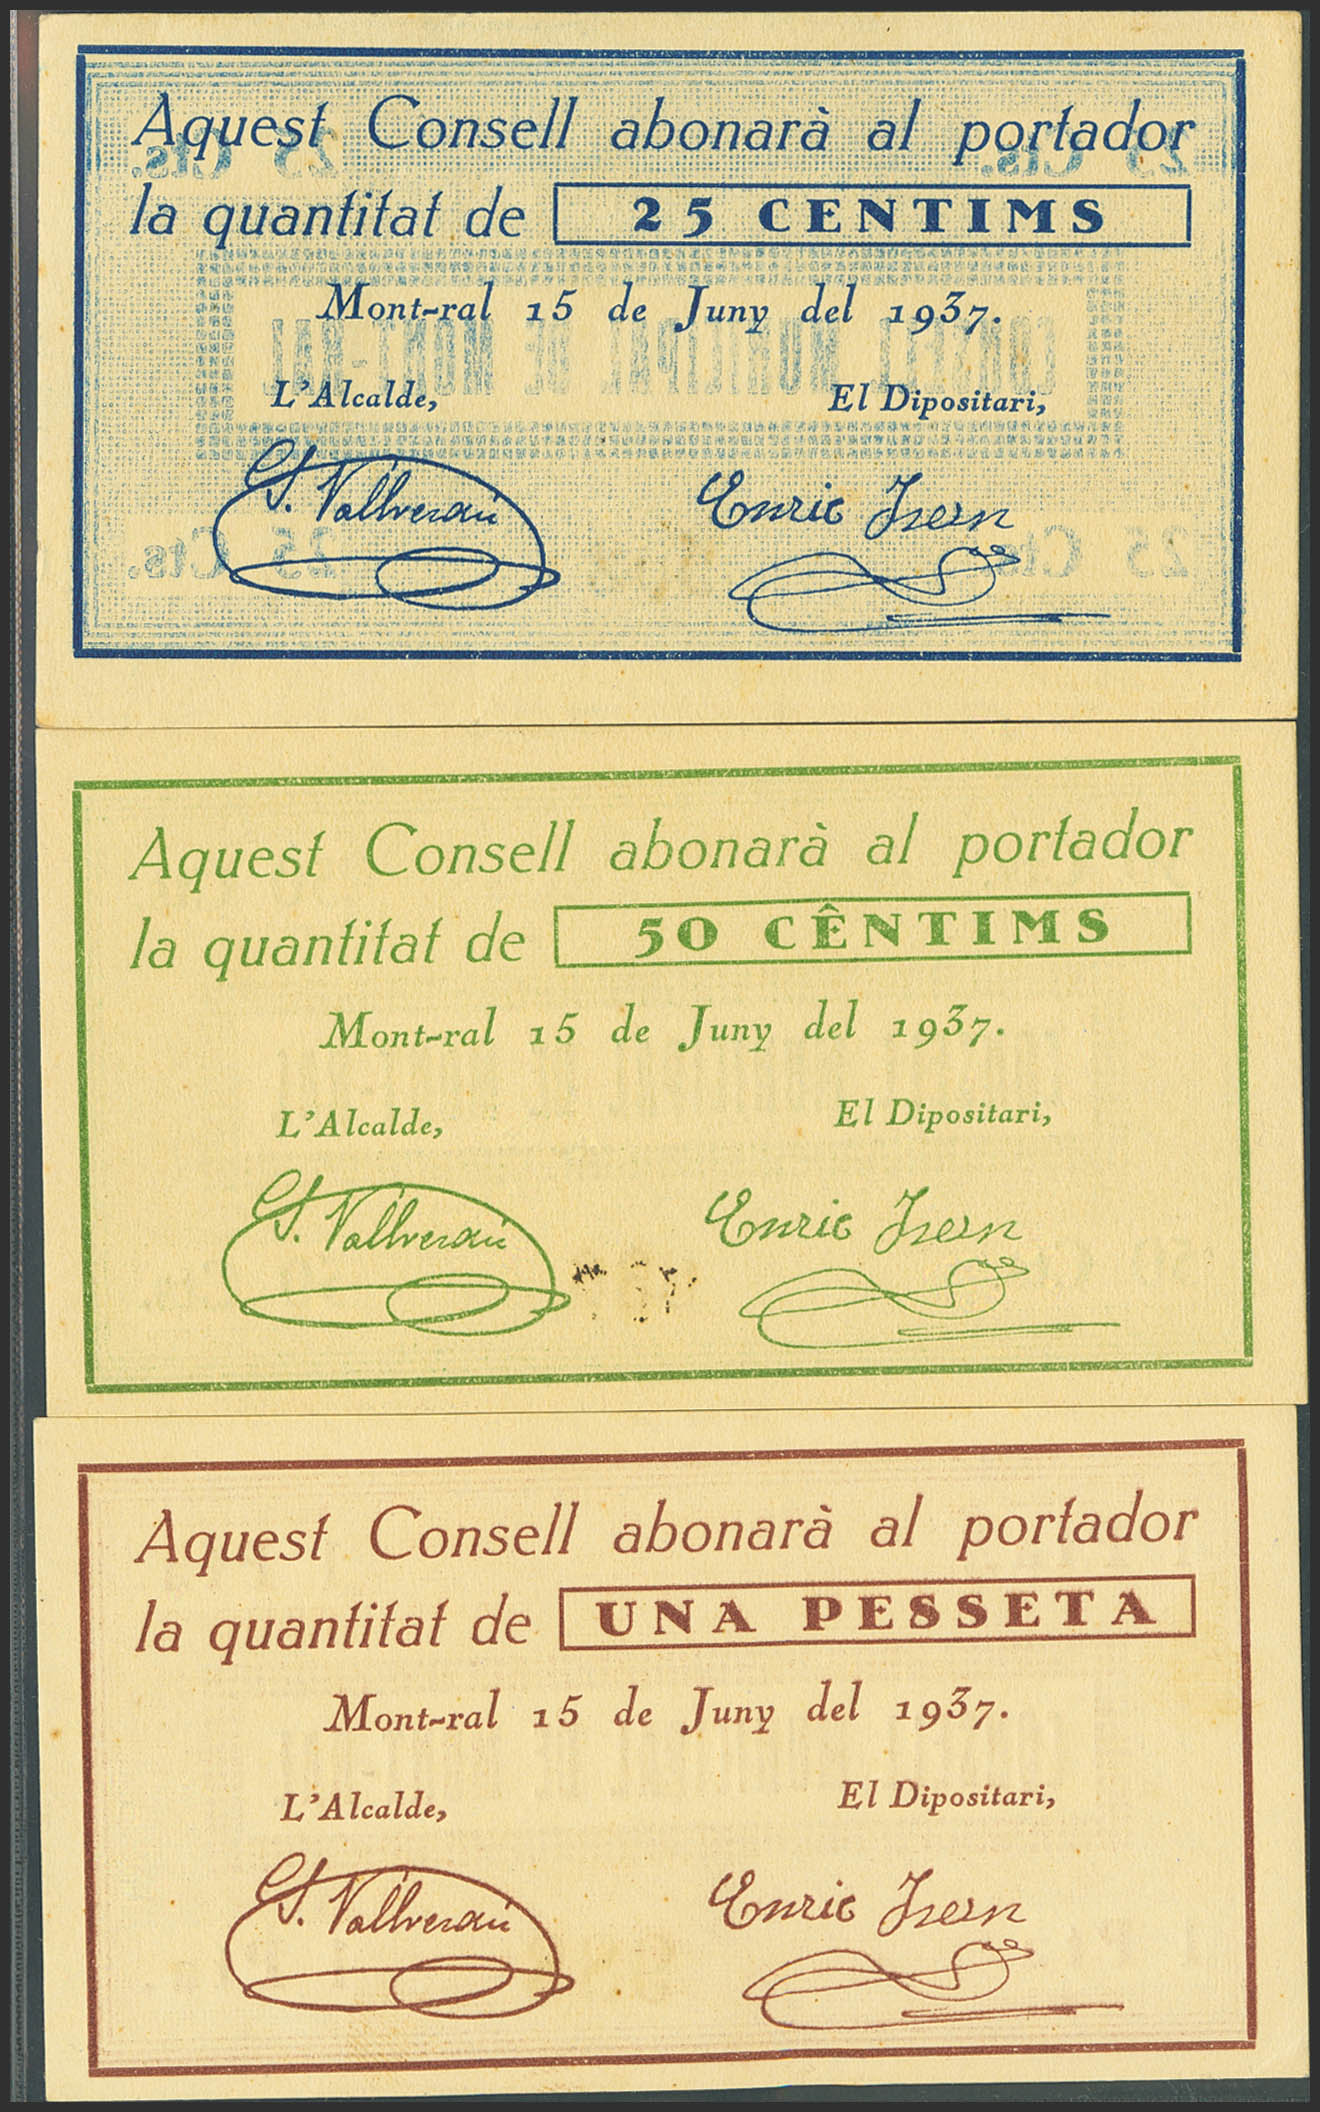 Aquest Consell abonarà al portador
la quantitat de 25 CENTIMS
Mont-ral 15 de Juny del 1937.
L'Alcalde, El Dipositari,
Enric Isern
Aquest Consell abonarà al portador
la quantitat de 50 CÊNTIMS
Mont-ral 15 de Juny del 1937.
L'Alcalde, El Dipositari,
Enric Isern
Aquest Consell abonarà al portador
la quantitat de UNA PESSETA
Mont-ral 15 de Juny del 1937.
L'Alcalde, El Dipositari,
Enric Isern